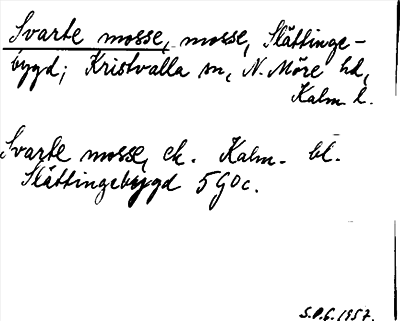 Svarte mosse, mosse, Slättinge-
bygd; Kristvalla sn, N. Möre hd,
Kalm. l.
Svarte mosse, ek. Kalm. bl.
Slättingebygd 5G0c.
S.P.G. 1957.